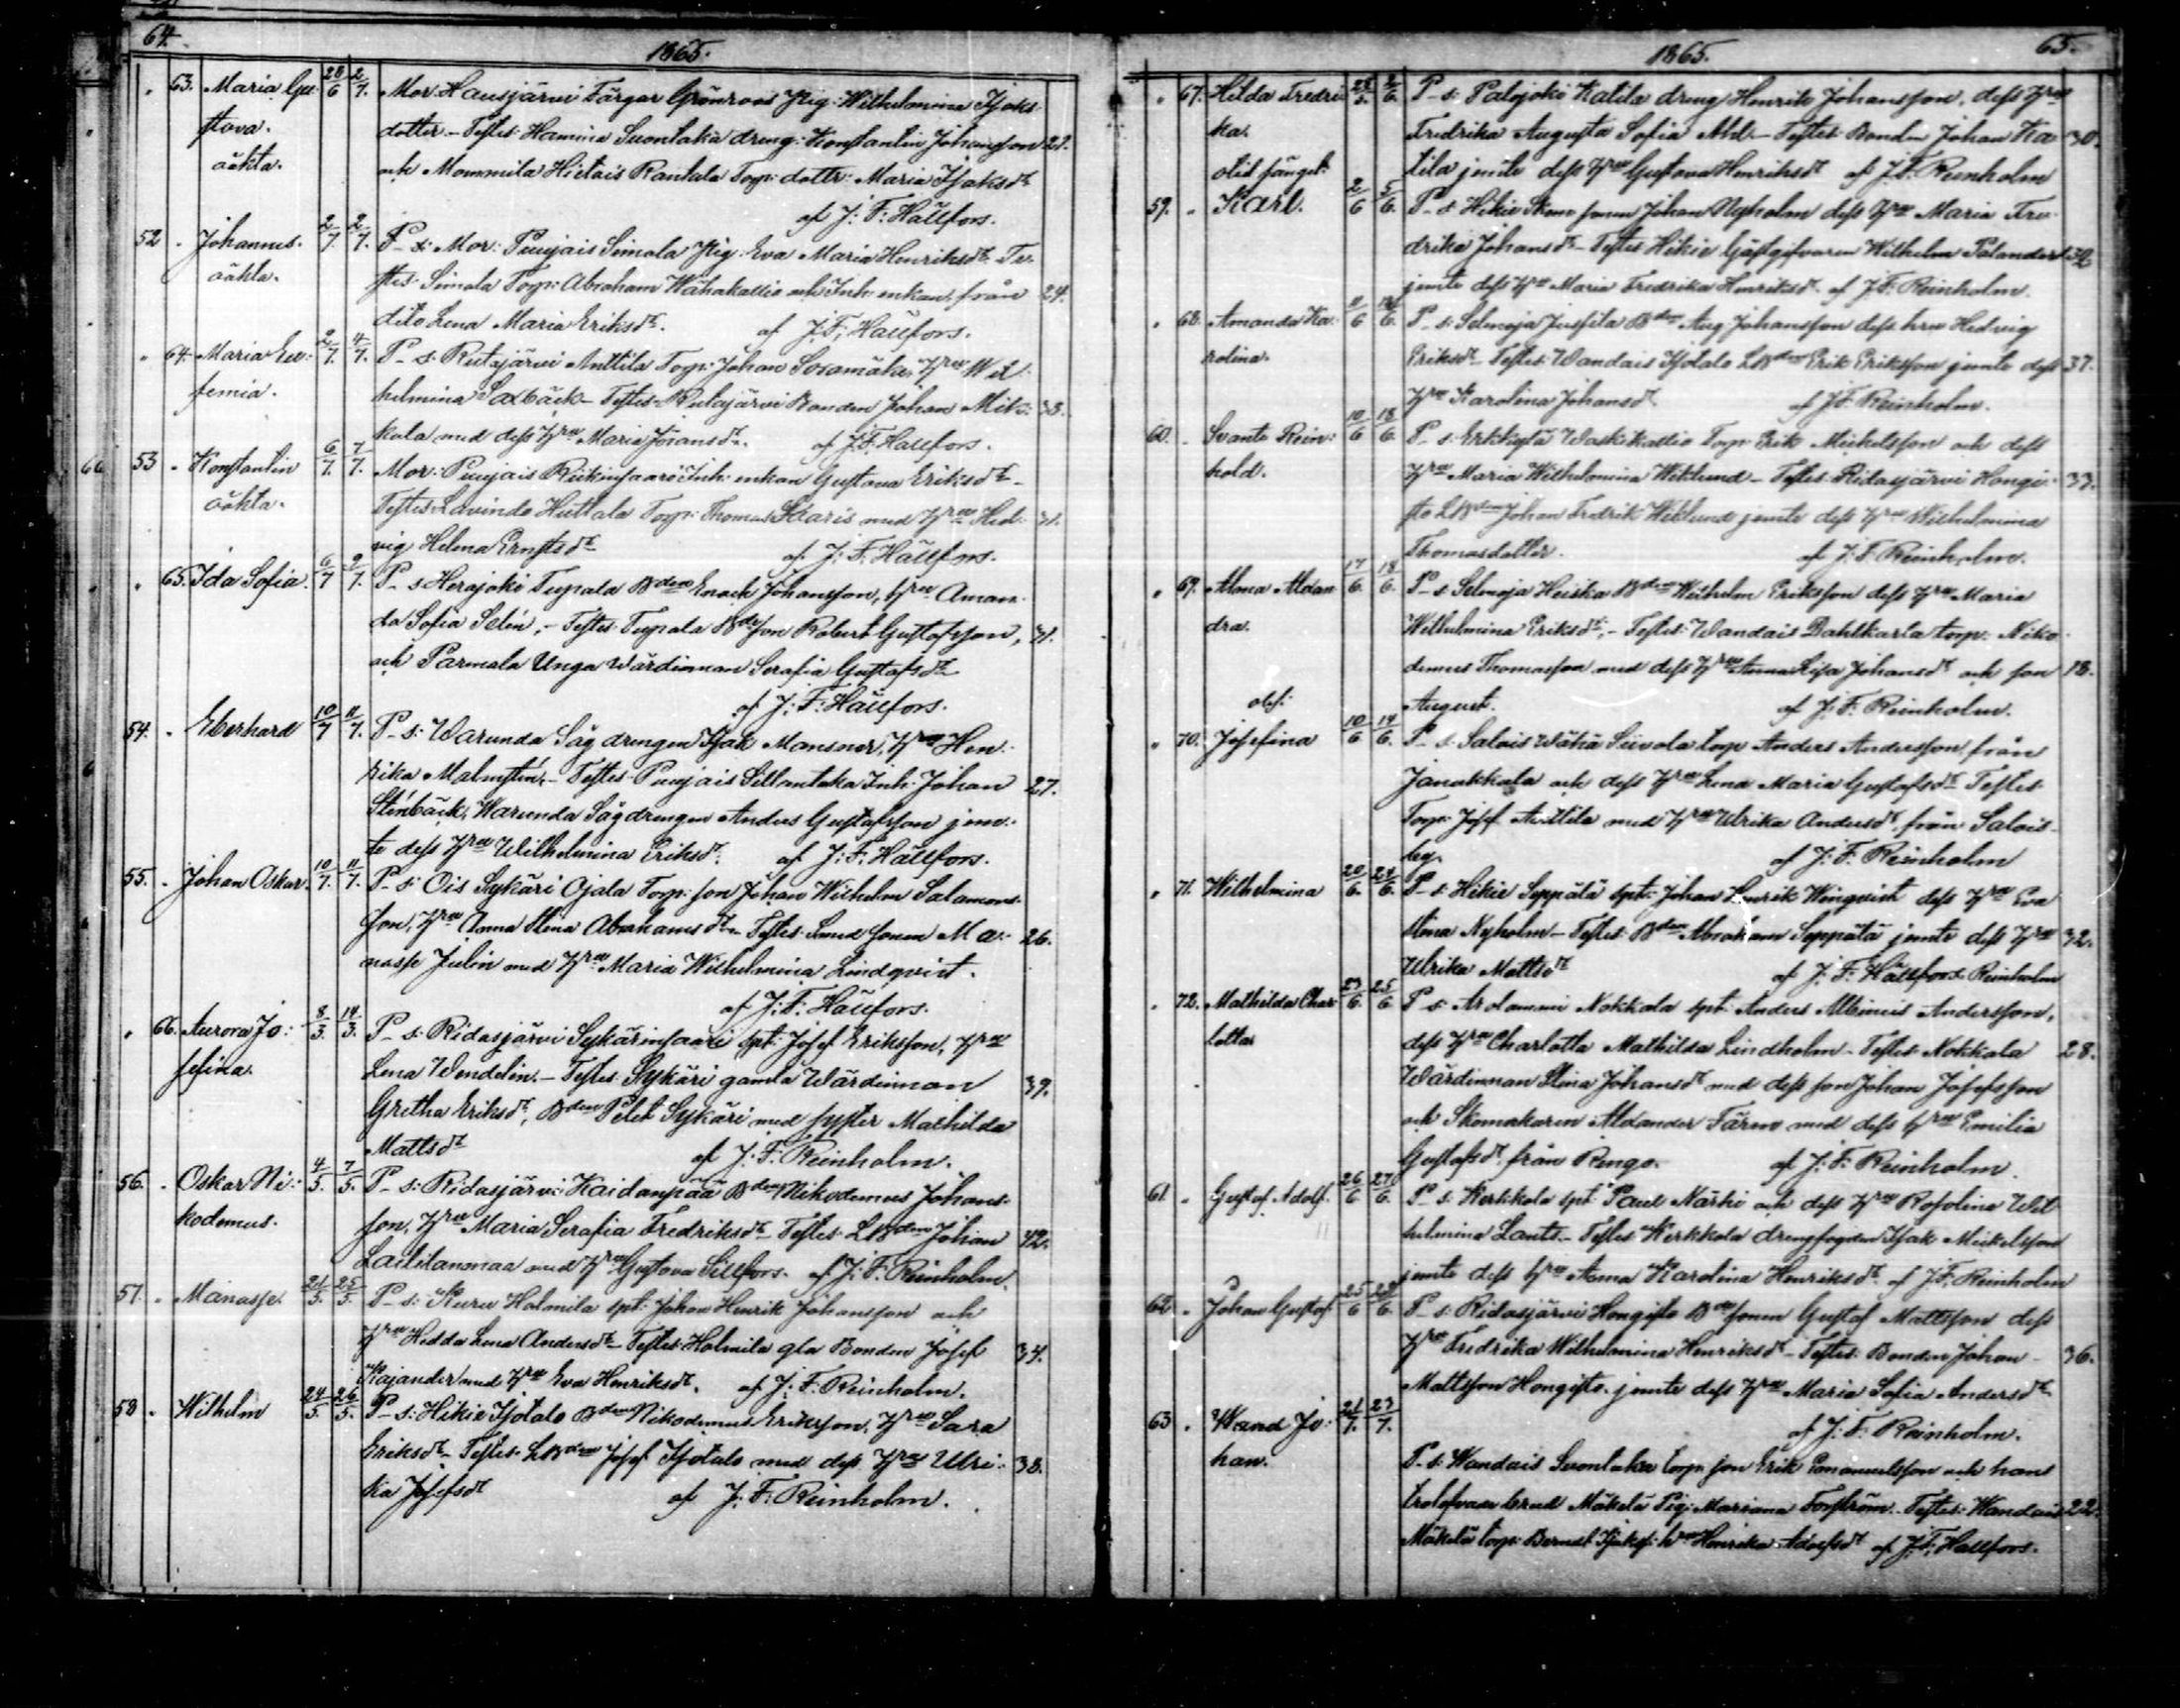 64. 1865.
63. Maria Gu- 28/6 2/7. Mor: Hausjärvi Färgar Grönroos Pig: Wilhelmina Isaks-
stava. dotter – Testes: Hamina Suontaka dreng: Konstantin Johansson 21.
oäkta. och Mommila Hietois Rantala Torp: dottr: Maria Isaksdr
af J: F: Hällfors.
52 Johannes. 2/7 2/7. P–s: Mor: Puujais Simola Pig: Eva Maria Henriksdr. Te-
oäkta. stes: Simola Torp: Abraham Wähäkallio och Inh: enkan från 24.
dito Lena Maria Eriksdr. af J: F: Hällfors.
64. Maria Eu- 2/7 4/7. P–s: Rutajärvi Anttila Torp: Johan Soramäki, Hru Wil-
femia. helmina Saxbäck – Testes: Rutajärvi Bonden Johan Mik- 38.
kola med dess Hru Maria Göransdr. af J: F: Hällfors.
53 Konstantin 6/7. 7/7. Mor: Puujais Riikinsaari Inh: enkan Gustava Eriksdr –
oäkta. Testes: Lavindo Huttala Torp: Thomas Skaris med Hru Hed- 31.
vig Helena Ernstsdr af J: F: Hällfors.
65. Ida Sofia. 6/7 9/7. P–s: Herajoki Tupala Bden Enoch Johansson, hru Aman-
da Sofia Selin, – Testes: Tupala Bdeson Robert Gustafsson, 31.
och Parmala Unga Wärdinnan Serafia Gustafsdr
af J: F: Hällfors.
54. Eberhard 10/7 11/7. P–s: Warunda Såg drengen Isak Mansner, Hru Hen-
rika Malmstén, – Testes: Puujais Sillantaka Inh: Johan 27.
Stenbäck, Warunda Sågdrengen Anders Gustafsson jem-
te dess Hru Wilhelmina Eriksdr. af J: F: Hällfors.
55. Johan Oskar. 10/7. 11/7. P–s: Ois Sykäri Ojala Torp: son Johan Wilhelm Salomons-
son, Hru Anna Stina Abrahamsdr – Testes: Smed sonen Ma- 26.
nasse Julin med Hru Maria Wilhelmina Lindqvist.
af J: F: Hällfors.
66. Aurora Jo- 8/3. 14/3. P–s: Ridasjärvi Sykärinsaari spt: Josef Eriksson, Hru
sefina. Lena Wendelin. – Testes: Sykäri gamla Wärdinnan 39.
Gretha Eriksdr, Bden Petter Sykäri med syster Mathilda
Mattsdr af J: F: Reinholm.
56. Oskar Ni- 4/5. 7/5. P–s: Ridasjärvi Kaidanpää Bden Nikodemus Johans-
kodemus. son, Hru Maria Serafia Fredriksdr – Testes: LBden Johan 42.
Laitilanmaa med Hru Gustava Sillfors. af J: F: Reinholm.
57. Manasse. 21/5. 25/5. P–s: Kuru Holmila spt: Johan Henrik Johansson och
Hru Hedda Lena Andersdr – Testes: Holmila gla Bonden Josef 34.
Kajander med Hru Eva Henriksdr. af J: F: Reinholm.
58 Wilhelm 24/5. 26/5. P–s: Hikie Isotalo Bden Nikodemus Eriksson, Hru Sara
Eriksdr – Testes: LBden Josef Isotalo med dess Hru Ulri- 38.
ka Josefsdr af J: F: Reinholm.
1865. 65.
67. Hilda Fredri- 28/5. 2/6. P–s: Palojoki Katila dreng Henrik Johansson, dess Hru
ka. Fredrika Augusta Sofia Ahl – Testes: Bonden Johan Ka- 30.
tila jemte dess Hru Gustava Henriksdr af J: F: Reinholm
59. Karl. 2/6 5/6. P–s: Hikie Skom sonen Johan Nyholm dess Hru Maria Fre-
drika Johansdr – Testes: Hikie Gästgifvaren Wilhelm Palander 32
jemte dess Hru Maria Fredrika Henriksdr. af J: F: Reinholm.
68. Amanda Ka- 11/6 /6. P–s: Selmoja Jussila Bden Aug Johansson dess hru Hedvig
rolina. Eriksdr – Testes: Wandais Isotalo LBden Erik Eriksson jemte dess 37.
Hru Karolina Johansdr. af J: F: Reinholm.
60. Svante Rein- 10/6 18/6. P–s: Erkkylä Waskikallio Torp: Erik Mickelsson och dess
hold. Hru Maria Wilhelmina Wiklund – Testes: Ridasjärvi Hongi- 33.
sto LBden Johan Fredrik Wiklund jemte dess Hru Wilhelmina
Thomasdotter. af J: F: Reinholm.
69. Alma Alexan- 17/6. 18/6. P–s: Selmoja Heiska Bden Wilhelm Eriksson dess Hru Maria
dra. Wilhelmina Eriksdr; – Testes: Wandais Dahlkarla torp: Niko-
demus Thomasson med dess Hru Anna Lisa Johansdr och son 18.
August. af J: F: Reinholm.
70. Josefina 10/6 14/6. P–s: Salois Wähä Siivola torp: Anders Andersson från
Janakkala och dess Hru Lena Maria Gustafsdr Testes:
Torp: Josef Anttila med Hru Ulrika Andersdr. från Salois
by. af J: F: Reinholm
71. Wilhelmina 20/6. 24/6. P–s: Hikie Seppälä spt: Johan Henrik Winqvist dess Hru Eva
Stina Nyholm – Testes: Bden Abraham Seppälä jemte dess Hru 32.
Ulrika Mattsdr af J: F: Hällfors Reinholm
72. Mathilda Char- 23/6. 25/6 P–s: Arolammi Nokkala spt: Anders Albinus Andersson,
lotta dess Hru Charlotta Mathilda Lindholm – Testes: Nokkala 28.
Wärdinnan Stina Johansdr med dess son Johan Josefsson
och Skomakaren Alexander Färm med dess hru Emilia
Gustafsdr. från Renga. af J: F: Reinholm.
61. Gustaf Adolf. 26/6 27/6. P–s: Kerkkola spt: Paul Närhi och dess Hru Rosolina Wil-
helmina Lants. – Testes: Kerkkola drengfogden Isak Mickelsson
jemte dess hru Anna Karolina Henriksdr. af J: F: Reinholm
62. Johan Gustaf 25/6 /6. P–s: Ridasjärvi Hongisto Bdesonen Gustaf Mattsson dess
Hru Fredrika Wilhelmina Henriksdr – Testes: Bonden Johan 36.
Mattsson Hongisto jemte dess Hru Maria Sofia Andersdr
af J: F: Reinholm.
63. Jo- 21/7. 23/7.
han. P–s: Wandais Suontaka torp: son Erik Emanuelsson och hans
trolofvade brud Mäkelä Pig: Mariana Forström. Testes: Wandais 22.
Mäkelä torp: Berndt Isaks: hru Henrika Adolfsdr af J: F: Hällfors.